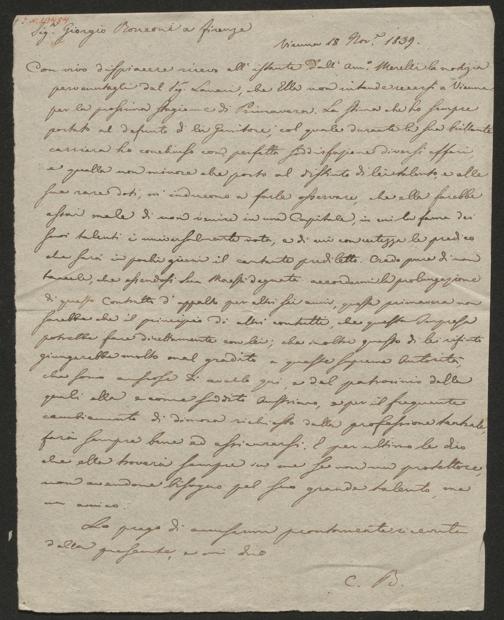 Sig.r Giorgio Ronconi a Firenze
Vienna 18 Nov.e 1839.
Con vivo dispiacere ricevo all'istante dall'Am.o Merelli la notizia
pervenutagli dal Sig. Lanari, che Ella non intende recarsi a Vienna
per la prossima stagione di Primavera. La stima che ho sempre
portato al defunto di lei Genitore, col quale durante la sua brillante
carriera ho concluso con perfetta soddisfazione diversi affari
e quella non minore che porto al distinto di lei talento e alle
sue rare doti, m'inducono a farle osservare, che ella farebbe
assai male di non venire in una Capitale, in cui la fama dei
suoi talenti è universalmente nota, e di cui con certezza le predico
che sarà in pochi giorni il cantante prediletto. Credo pure di non
tacerle, che essendosi Sua Maestà degnata accordarmi la prolungazione
di questo Contratto d'appalto per altri sei anni, questa primavera non
sarebbe che il principio di altri contratti, che questa Impresa
potrebbe fare direttamente con lei; che inoltre questo di lei rifiuto
giungerebbe molto mal gradito a queste supreme Autorità,
che sono ansiose di averla qui, e del patrocinio delle
quali ella come suddito Austriaco, e per il frequente
cambiamento di dimora richiesto dalla professione teatrale,
farà sempre bene ad assicurarsi. E per ultimo le dico
che ella troverà sempre in me se non un protettore,
non avendone bisogno pel suo grande talento, ma
un amico.
La prego di accusarmi prontamente ricevuta
della presente, e mi dico
C. B.